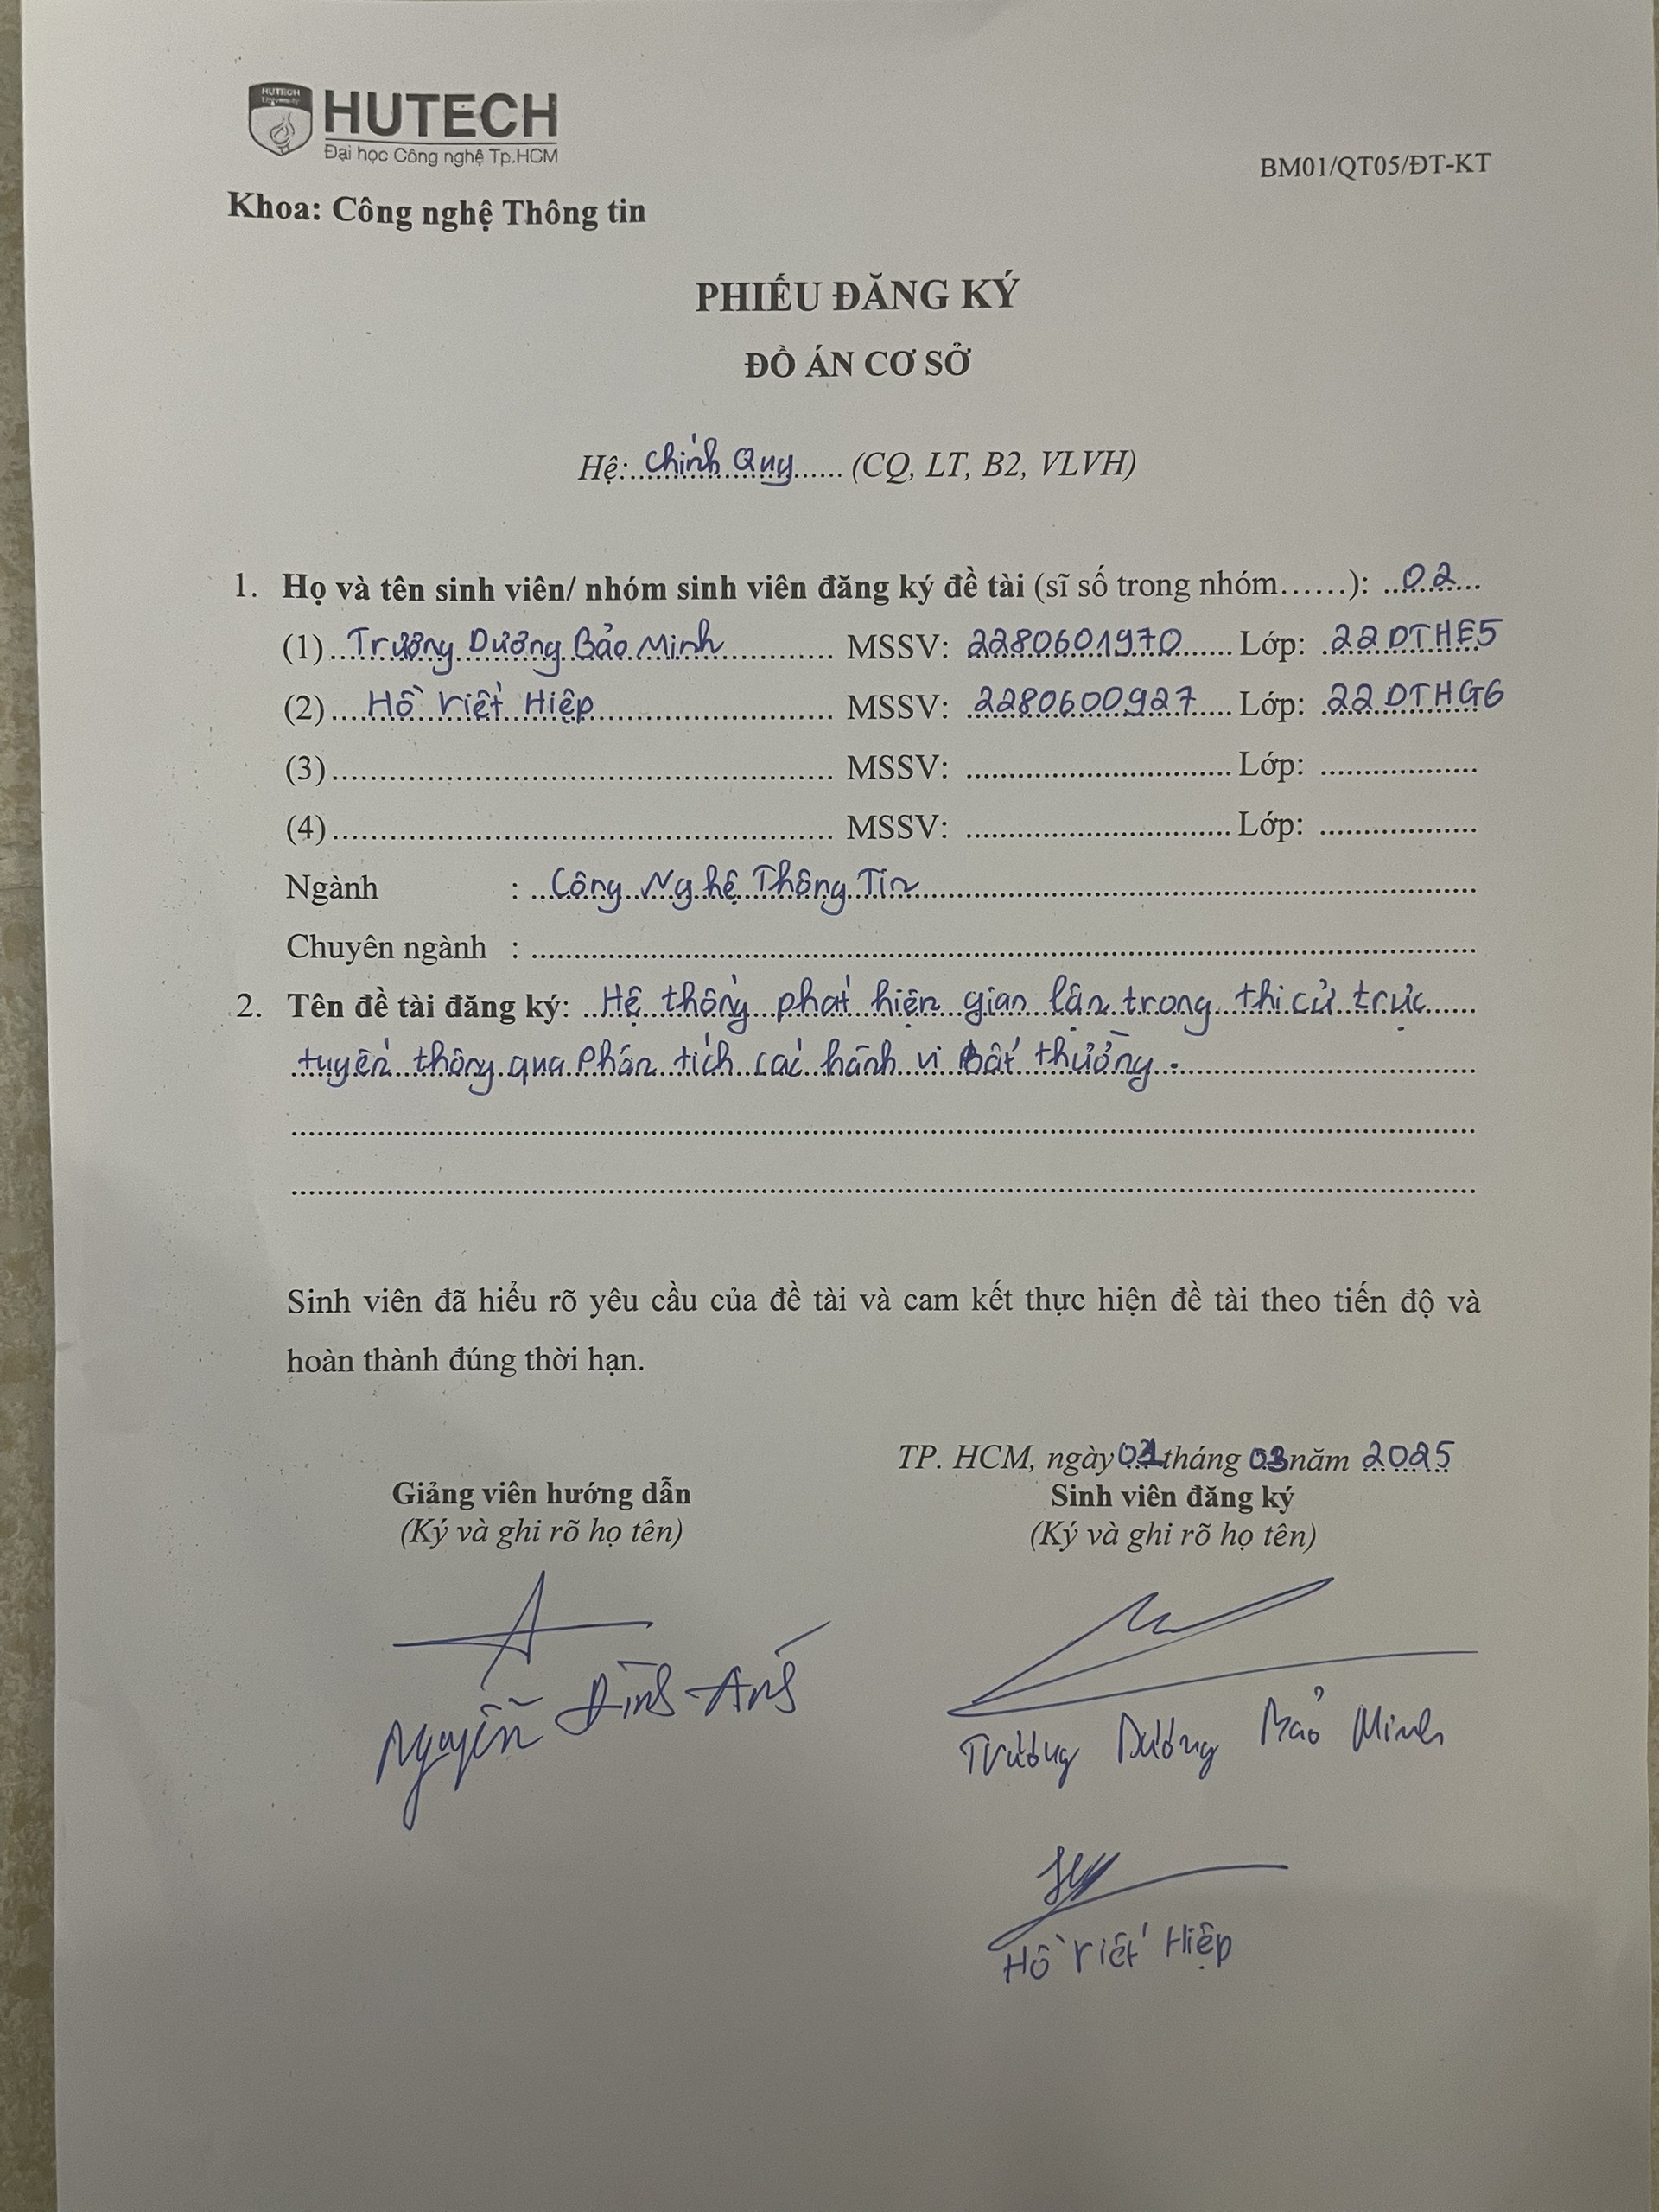 HUTECH
University
HUTECH
Đại học Công nghệ Tp.HCM
BM01/QT05/ĐT-KT
Khoa: Công nghệ Thông tin
PHIẾU ĐĂNG KÝ
ĐỒ ÁN CƠ SỞ
Hệ: Chính Quy (CQ, LT, B2, VLVH)
1. Họ và tên sinh viên/ nhóm sinh viên đăng ký đề tài (sĩ số trong nhóm……): 02
(1) Trương Dương Bảo Minh MSSV: 2280601970 Lớp: 22DTHE5
(2) Hồ Viết Hiệp MSSV: 2280600927 Lớp: 22DTHG6
(3) MSSV: Lớp:
(4) MSSV: Lớp:
Ngành : Công Nghệ Thông Tin
Chuyên ngành :
2. Tên đề tài đăng ký: Hệ thống phát hiện gian lận trong thi cử trực
tuyến thông qua phân tích các hành vi bất thường.
Sinh viên đã hiểu rõ yêu cầu của đề tài và cam kết thực hiện đề tài theo tiến độ và
hoàn thành đúng thời hạn.
TP. HCM, ngày tháng 03 năm 2025
Giảng viên hướng dẫn Sinh viên đăng ký
(Ký và ghi rõ họ tên) (Ký và ghi rõ họ tên)
Nguyễn Đình Ánh
Trương Dương Bảo Minh
Hồ Viết Hiệp